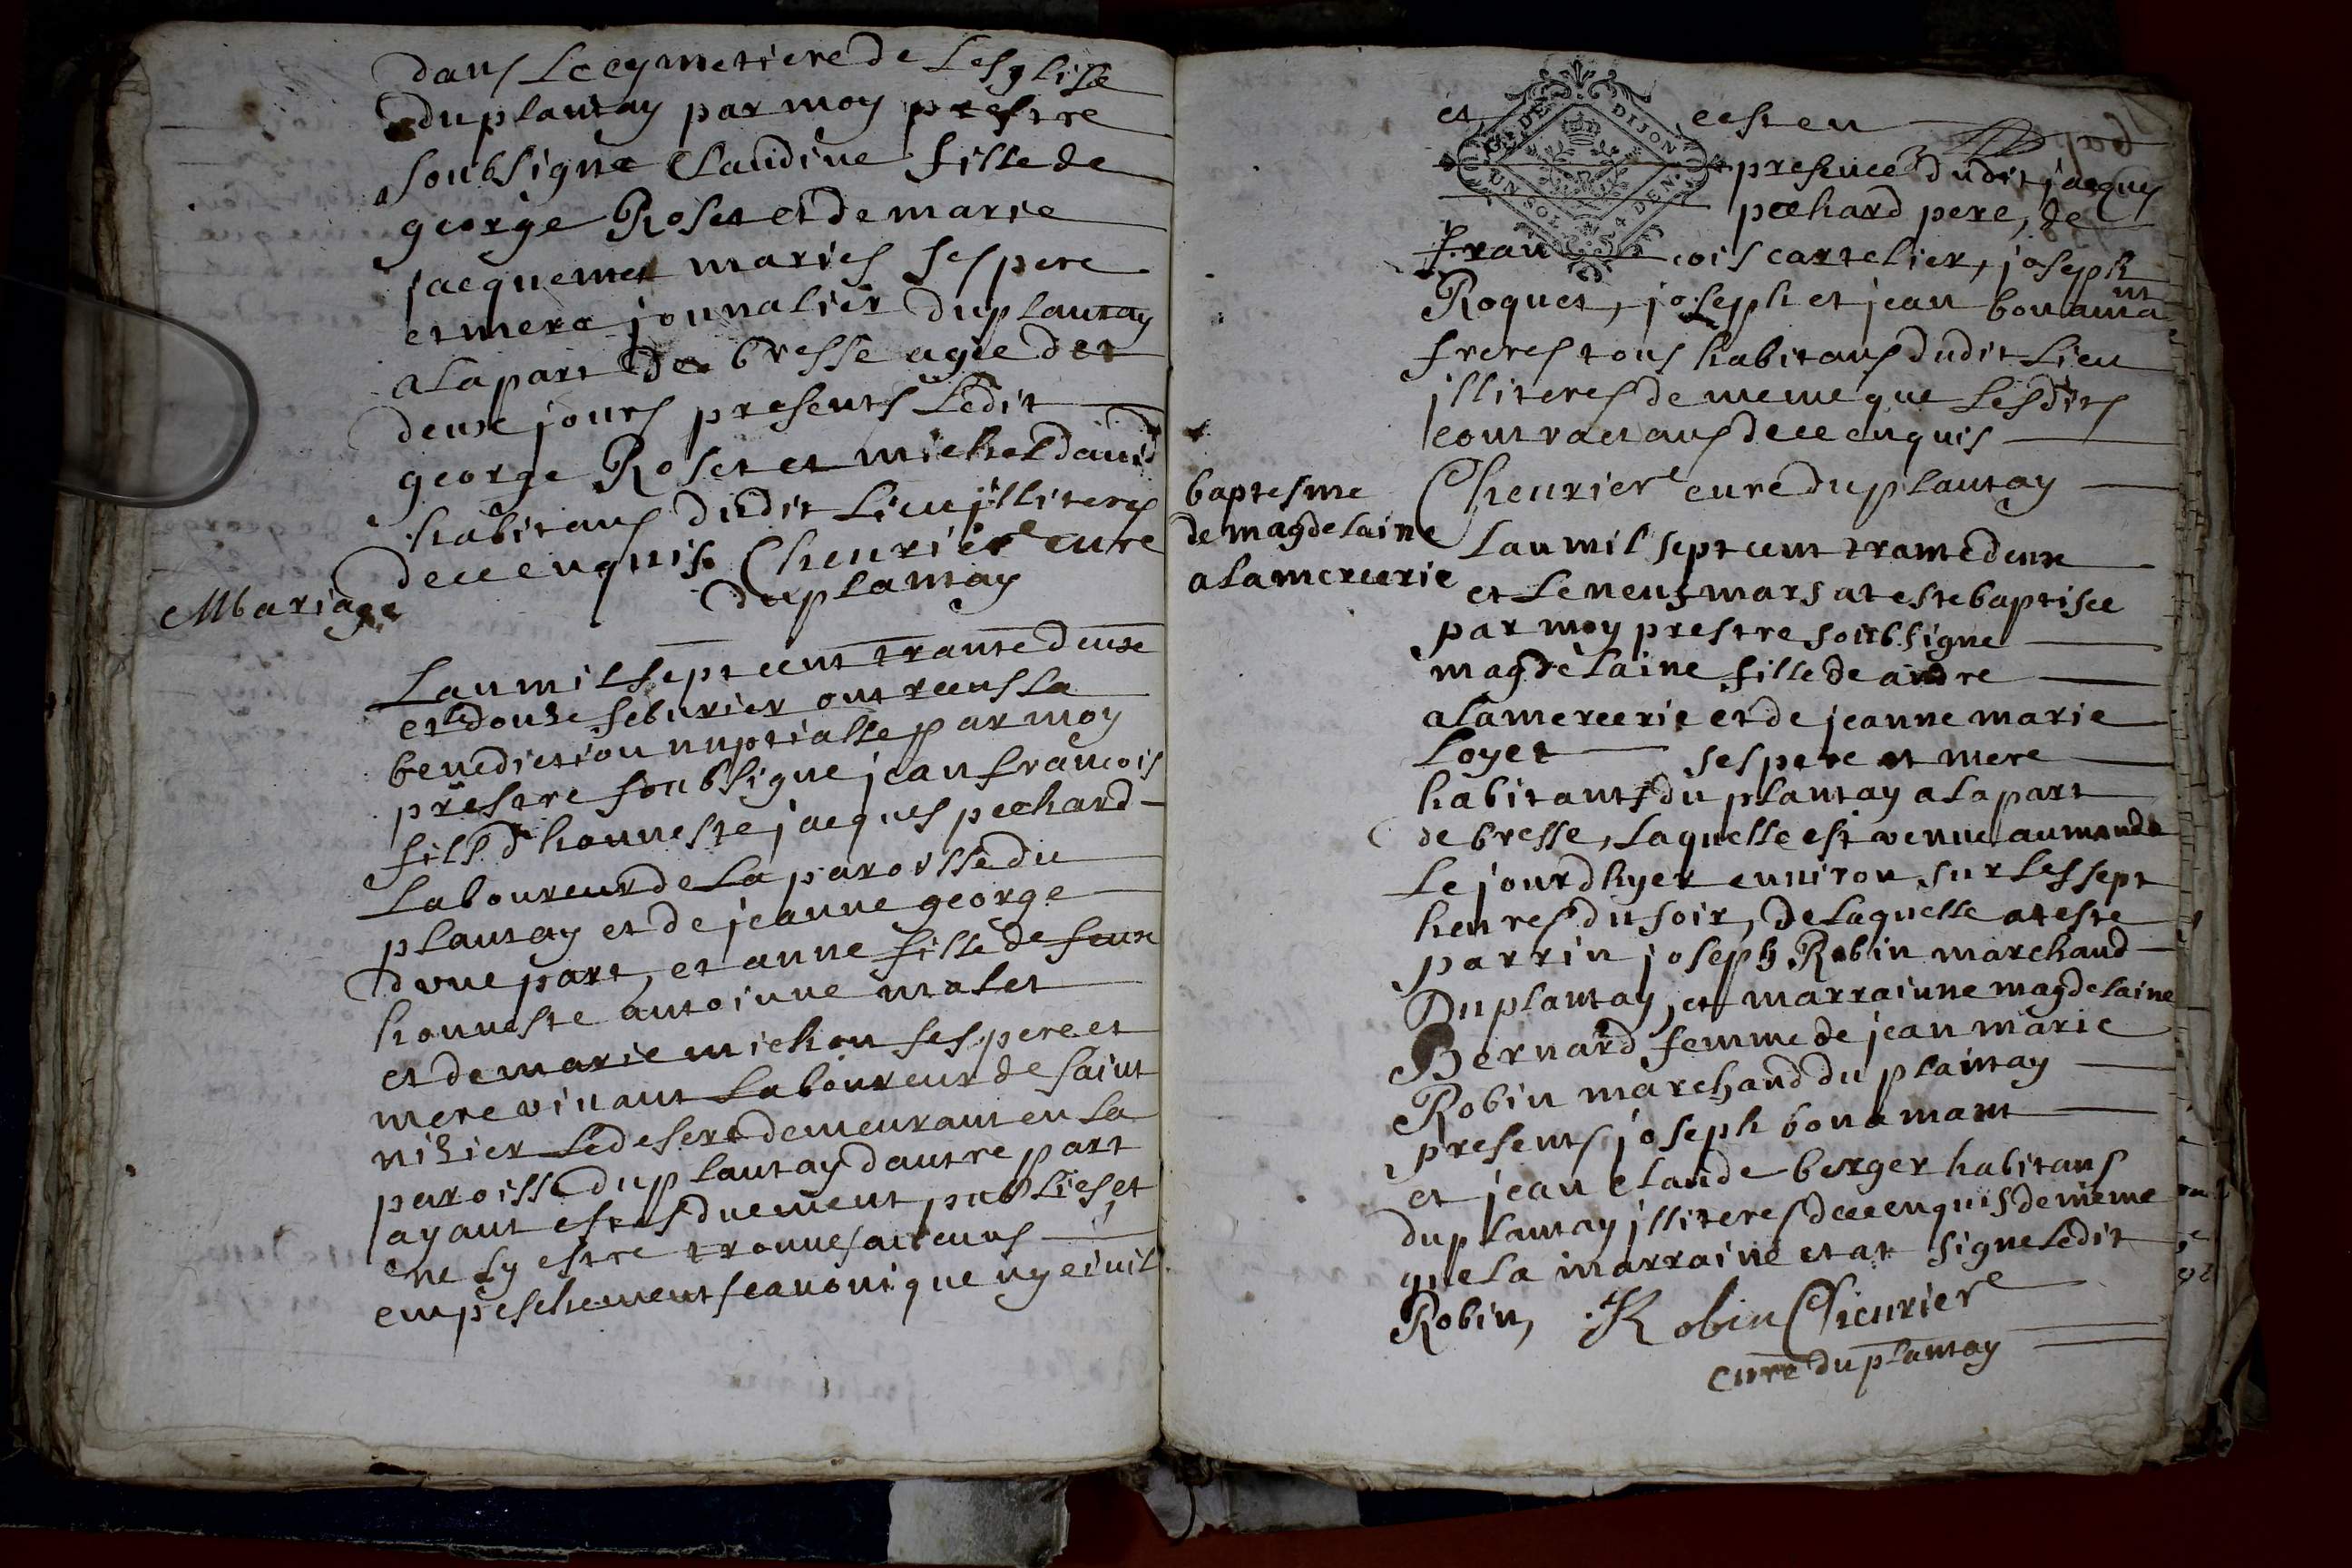 dans le cymetiere de Lesglise
du plantay par moy prestre
soubsigne Claudine fille de
george Roset et de marie
jacquemet maries ses pere
et mere journalier du plantay
a la part de bresse agee de
deux jours presents Ledit
george Roset et michel david
habitans dudit Lieu jlliteres
de ce enquis Cheurier cure
du plantay
Mariage
Lan mil sept cent trante deux
et le douze feburier ont receus la
benediction nuptialle par moy
prestre soubsigne jean francois
fils d'honneste jacques pechard
Laboureur de La paroisse du
plantay et de jeanne george
dvne part, et anne fille de feux
honneste antoinne malet
et de marie michon ses pere et
mere vivant Laboureur de saint
nizier Le desert demeurant en La
paroisse du plantay dautre part
ayant estes duement publies, et
ne sy estre trouues aucuns
empeschements canonique ny ciuil
et ce st en
presence dudit jacques
pechard pere, de
francois cartelier, joseph
Roquet, joseph et jean bonamant
freres tous habitans dudit Lieu
jlliteres de meme que Lesdits
contractans de ce enquis
Cheurier cure du plantay
baptesme
de magdelaine
alamercerie
Lan mil sept cent trante deux
et Le neuf mars at este baptisee
par moy prestre soubsigne
magdelaine fille de andre
alamercerie et de jeanne marie
Loyet ses pere et mere
habitants du plantay a la part
de bresse, Laquelle est venue au monde
Le jour dhyer enuiron sur Les sept
heures du soir, de Laquelle at este
parrin joseph Robin marchand
Du plantay, et marrainne magdelaine
Bernard femme de jean marie
Robin marchand du plantay
presents joseph bonamant
et jean claude berger habitans
du plantay jlliteres de ce enquis de meme
que la marraine et at signe Ledit
Robin, Robin Cheurier
cure du plantay
G. DE DIJON
UN SOL 4 DEN.